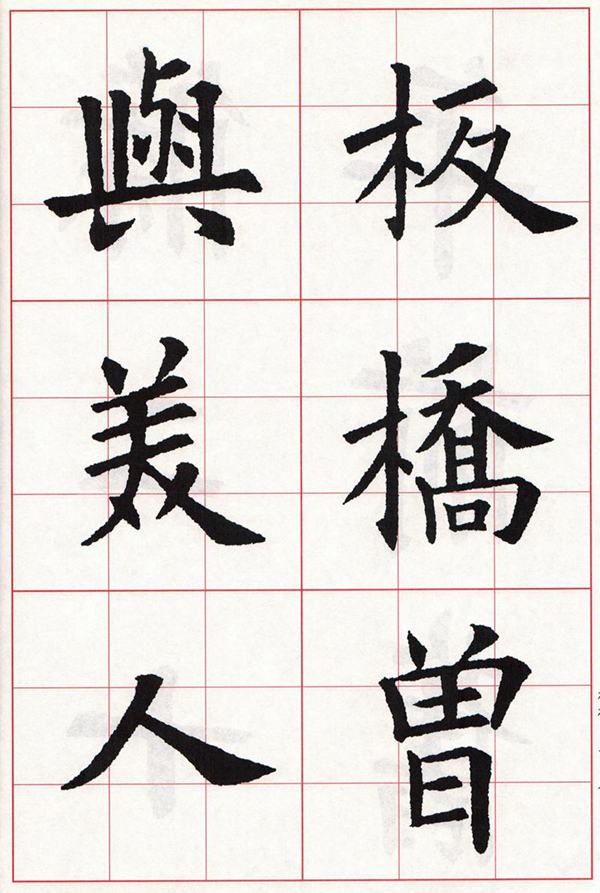 板橋曽
與美人